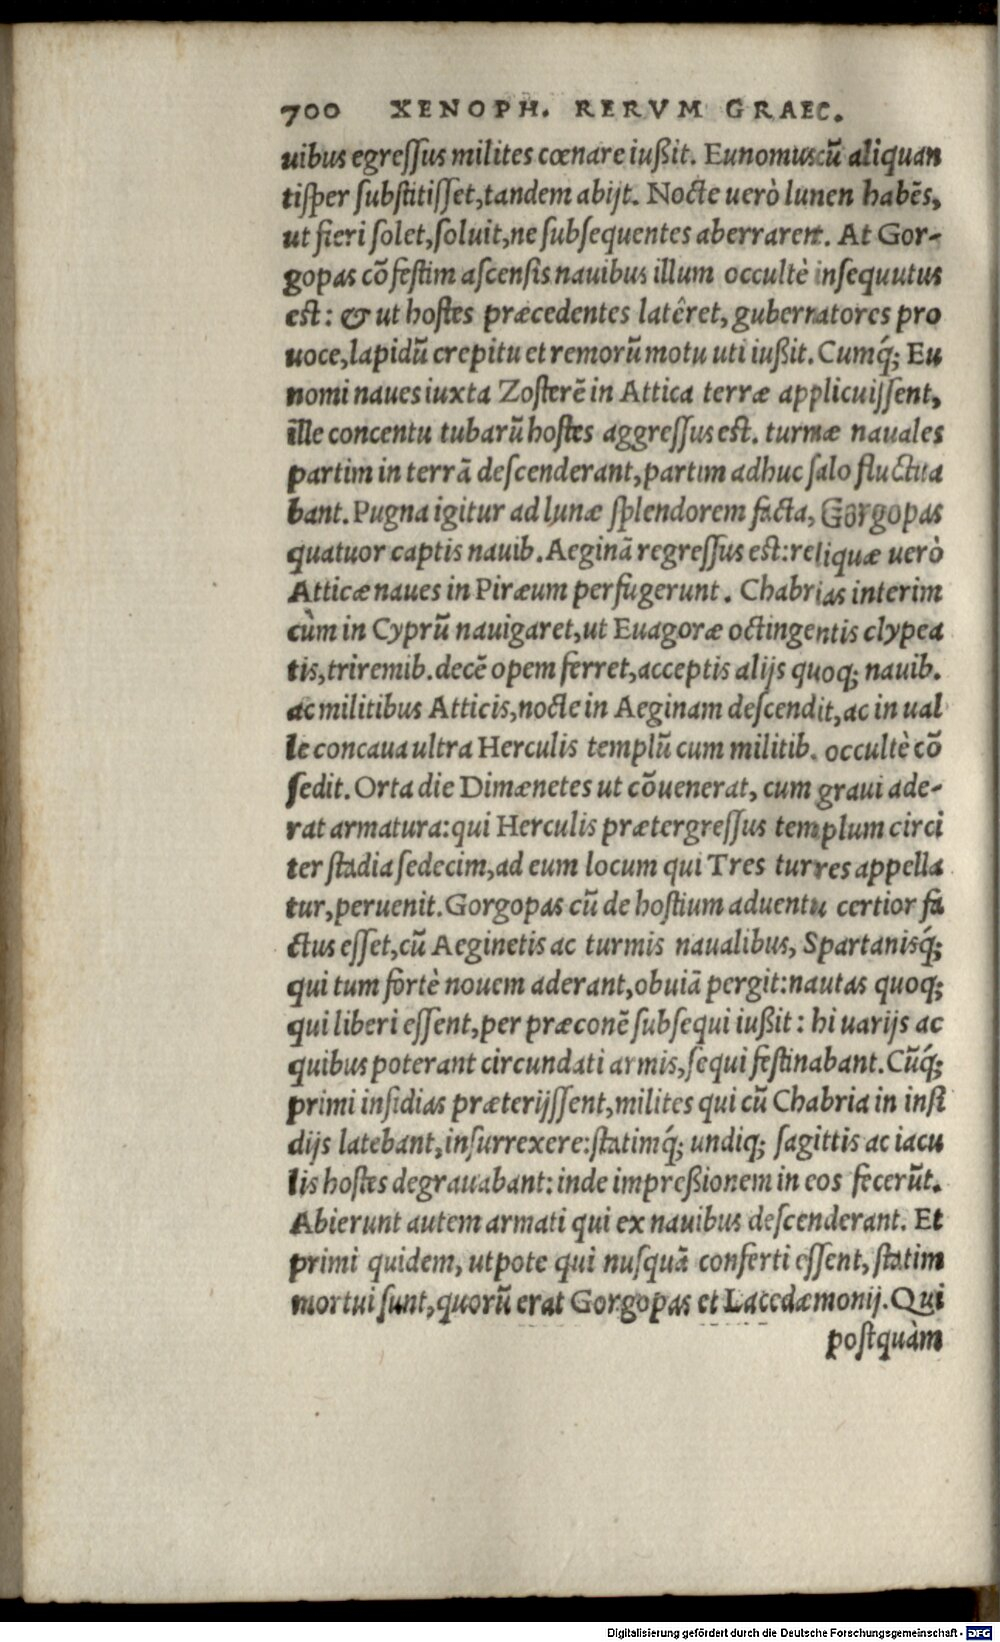 700 XENOPH. RERVM GRAEC.
uibus egreſſus milites cœnare iußit. Eunomus cũ aliquan
tiſper ſubſtitiſſet, tandem abijt. Nocte uerò lunen habẽs,
ut fieri ſolet, ſoluit, ne ſubſequentes aberrarent. At Gor-
gopas cõfeſtim aſcenſis nauibus illum occultè inſequutus
est: & ut hoſtes præcedentes latêret, gubernatores pro
uoce, lapidũ crepitu et remorũ motu uti iußit. Cumq́; Eu
nomi naues iuxta Zoſterẽ in Attica terræ applicuiſſent,
ille concentu tubarũ hoſtes aggreſſus est. turmæ nauales
partim in terrã deſcenderant, partim adhuc ſalo fluctua
bant. Pugna igitur ad lunæ ſplendorem facta, Gorgopas
quatuor captis nauib. Aeginã regreſſus est: reliquæ uerò
Atticæ naues in Piræum perfugerunt. Chabrias interim
cùm in Cyprũ nauigaret, ut Euagoræ octingentis clypea
tis, triremib. decẽ opem ferret, acceptis alijs quoq; nauib.
ac militibus Atticis, nocte in Aeginam deſcendit, ac in ual
le concaua ultra Herculis templũ cum militib. occultè cõ
ſedit. Orta die Dimænetes ut cõuenerat, cum graui ade-
rat armatura: qui Herculis prætergreſſus templum circi
ter ſtadia ſedecim, ad eum locum qui Tres turres appella
tur, peruenit. Gorgopas cũ de hoſtium aduentu certior fa
ctus eſſet, cũ Aeginetis ac turmis naualibus, Spartanisq́;
qui tum fortè nouem aderant, obuiã pergit: nautas quoq;
qui liberi eſſent, per præconẽ ſubſequi iußit: hi uarijs ac
quibus poterant circundati armis, ſequi feſtinabant. Cũq́;
primi inſidias præterijſſent, milites qui cũ Chabria in inſi
dijs latebant, inſurrexere: ſtatimq́; undiq; ſagittis ac iacu
lis hoſtes degrauabant: inde impreßionem in eos fecerũt.
Abierunt autem armati qui ex nauibus deſcenderant. Et
primi quidem, utpote qui nuſquã conferti eſſent, ſtatim
mortui ſunt, quorũ erat Gorgopas et Lacedæmonij. Qui
poſtquàm
Digitalisierung gefördert durch die Deutsche Forschungsgemeinschaft - DFG